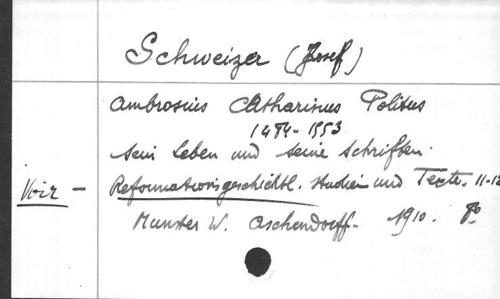 Schweizer (Josef)
Ambrosius Catharinus Politus
1484-1553
sein Leben und seine Schriften.
Voir - Reformationsgeschichtl. Studien und Texte. 11-12
Munster W. Aschendorff. 1910. 8º